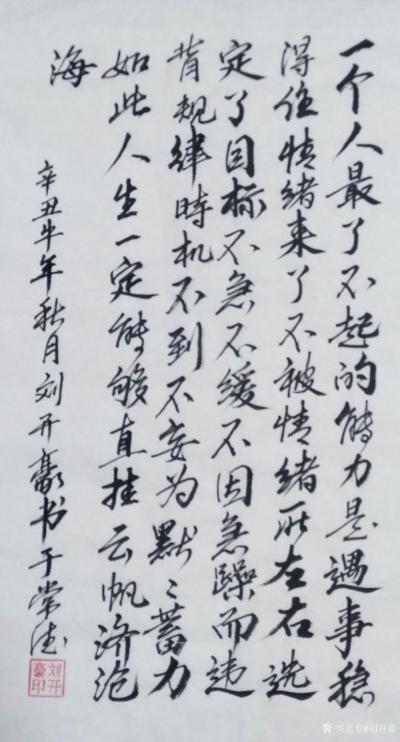 一个人最了不起的能力是遇事稳
得住情绪来了不被情绪所左右选
定了目标不急不缓不因急躁而违
背规律時机不到不妄为默〻蓄力
如此人生一定能够直挂云帆济沧
海
辛丑牛年秋月刘开豪书于常德
刘开豪印
兴艺堂@刘开豪